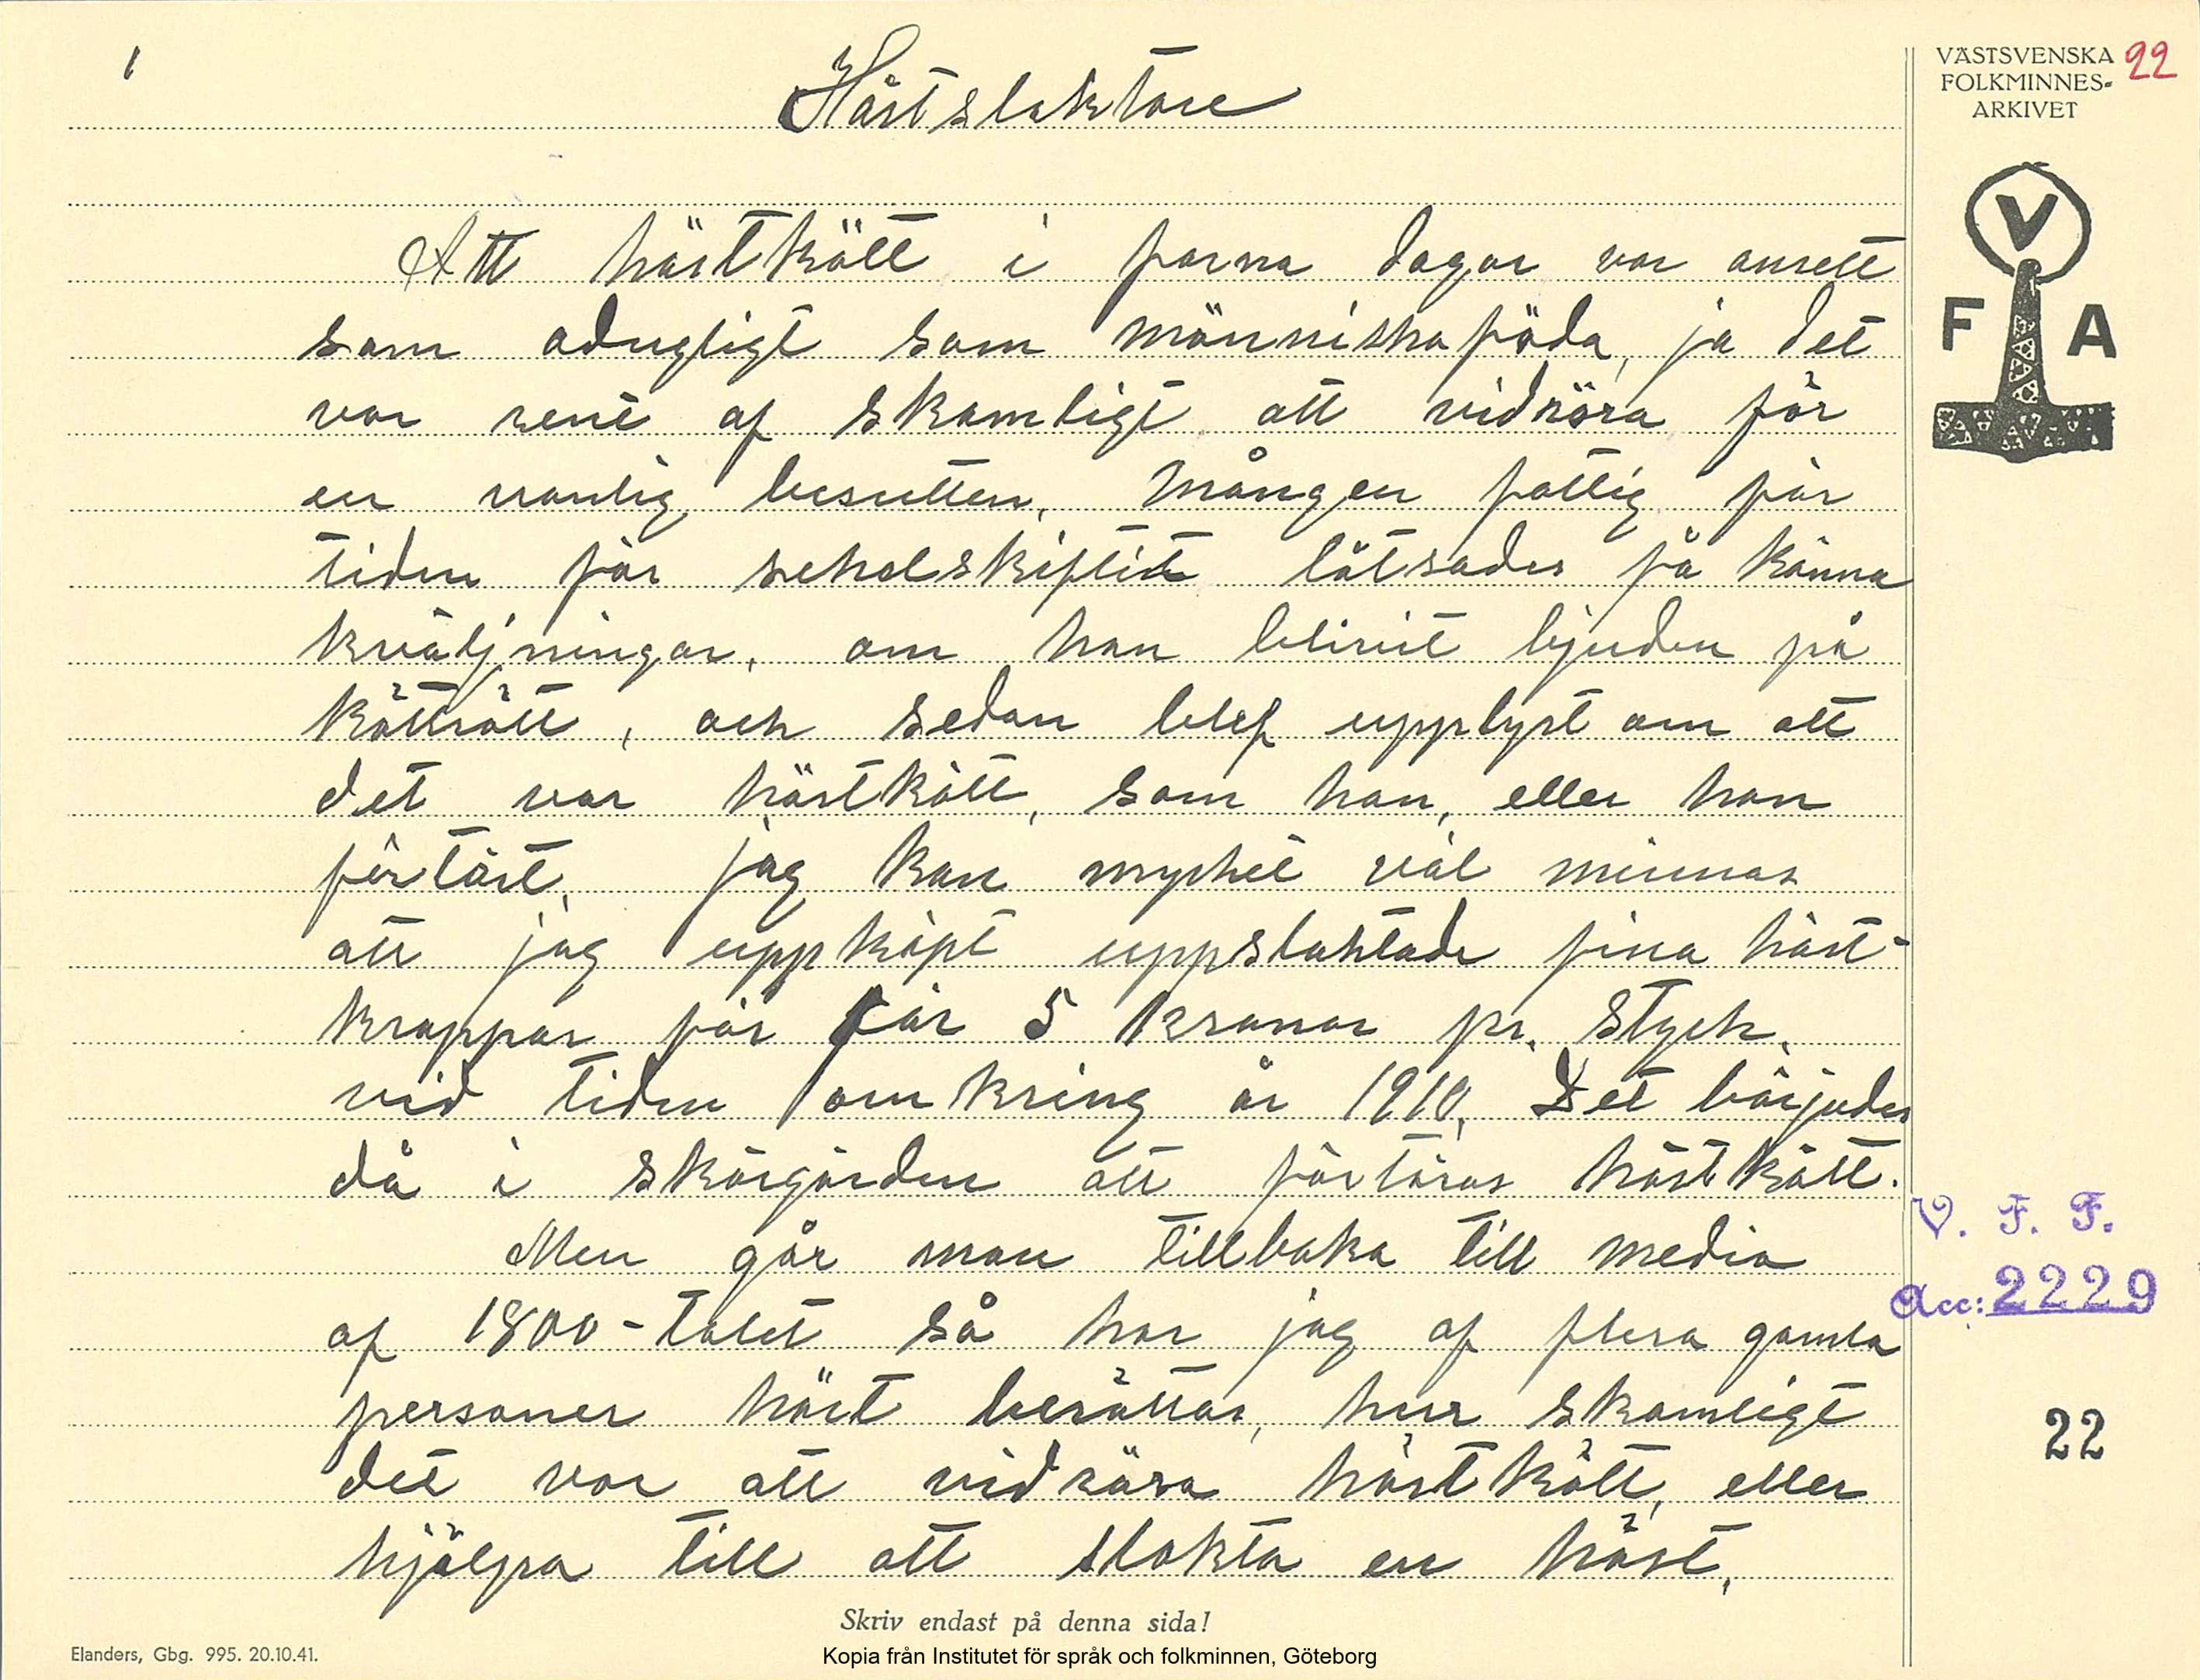 1
Hästslaktare
VÄSTSVENSKA
FOLKMINNES-
ARKIVET
22
V
F A
Att hästkött i forna dagar var ansett
som odugligt som människoföda, ja det
var rent af skamligt att vidröra för
en vanlig besutten. Mången fattig för
tiden för sekelskiftet låtsades få känna
kväljningar, om han blivit bjuden på
kötträtt, och sedan blef upplyst om att
det var hästkött, som han, eller hon
förtärt. jag kan mycket väl minnas
att jag uppköpt uppslaktade fina häst-
kroppar för 5 kronor pr. styck.
vid tiden omkring år 1910. Det börjades
då i skärgården att förtäras hästkött.
Men går man tillbaka till media
af 1800-talet så har jag af flera gamla
personer hört berättas, hur skamligt
det var att vidröra hästkött, eller
hjälpa till att slakta en häst.
V. F. F.
Acc: 2229
22
Skriv endast på denna sida!
Elanders, Gbg. 995. 20.10.41.
Kopia från Institutet för språk och folkminnen, Göteborg